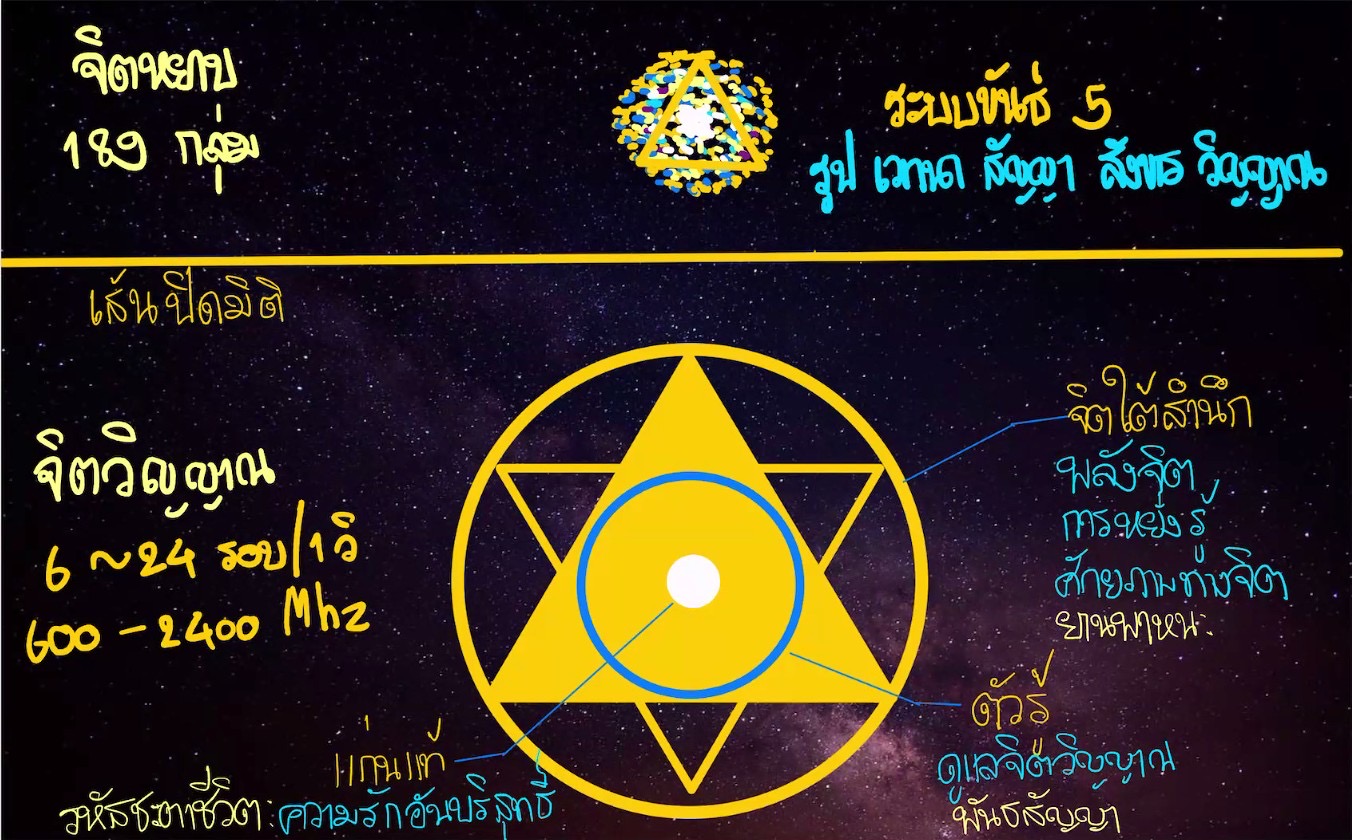 จิตหยาบ
189 กลุ่ม
ระบบขันธ์ 5
รูป เวทนา สัญญา สังขาร วิญญาณ
เส้นปิดมิติ
จิตวิญญาณ
6 ~ 24 รอบ/1 วิ
600 - 2400 Mhz
จิตใต้สำนึก
พลังจิต
การหยั่งรู้
ศักยภาพทางจิต
ยานพาหนะ
ตัวรู้
ดูแลจิตวิญญาณ
พันธสัญญา
แก่นแท้
รหัสชะตาชีวิต: ความรักอันบริสุทธิ์